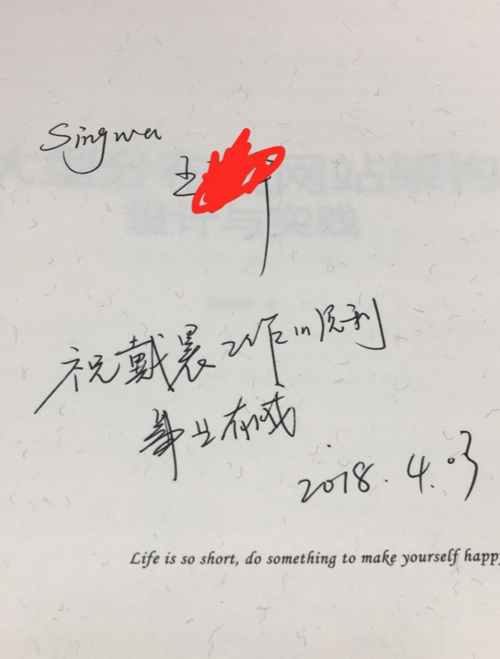 Singwa
王
祝戴晨工作顺利
事业有成
2018.4.03
大型分布式网站架构
设计与实践
Life is so short, do something to make yourself happy